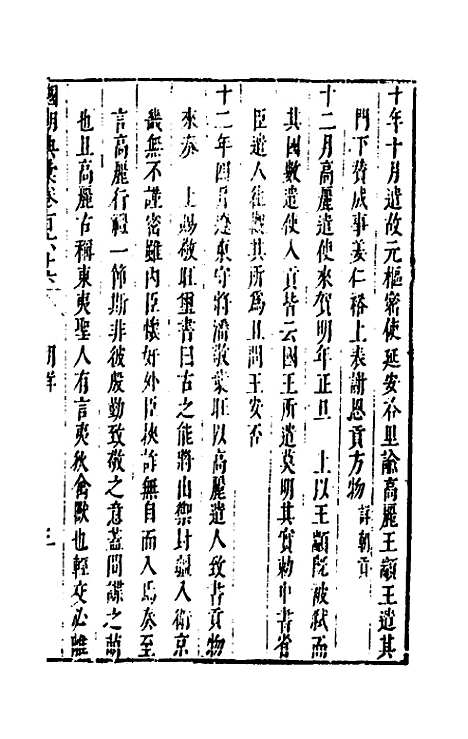 十年十月遣故元樞密使延安答里諭高麗王顓王遣其
門下贊成事姜仁裕上表謝恩貢方物詳朝貢
十二月高麗遣使來賀明年正旦　上以王顓既被弒而
其國數遣使入貢皆云國王所遣莫明其實勅中書省
臣遣人往觀其所為且問王安否
十二年四月遼東守將潘敬葉旺以高麗遣人致書貢物
來奏　上賜敬旺璽書曰古之能將出禦封疆入衛京
畿無不謹密雖內臣懷奸外臣挾詐無自而入焉奏至
言高麗行禮一節斯非彼殷勤致敬之意蓋間諜之萌
也且高麗古稱東夷聖人有言夷狄禽獸也輕交必離
國朝典彙卷百六十六　朝鮮　三